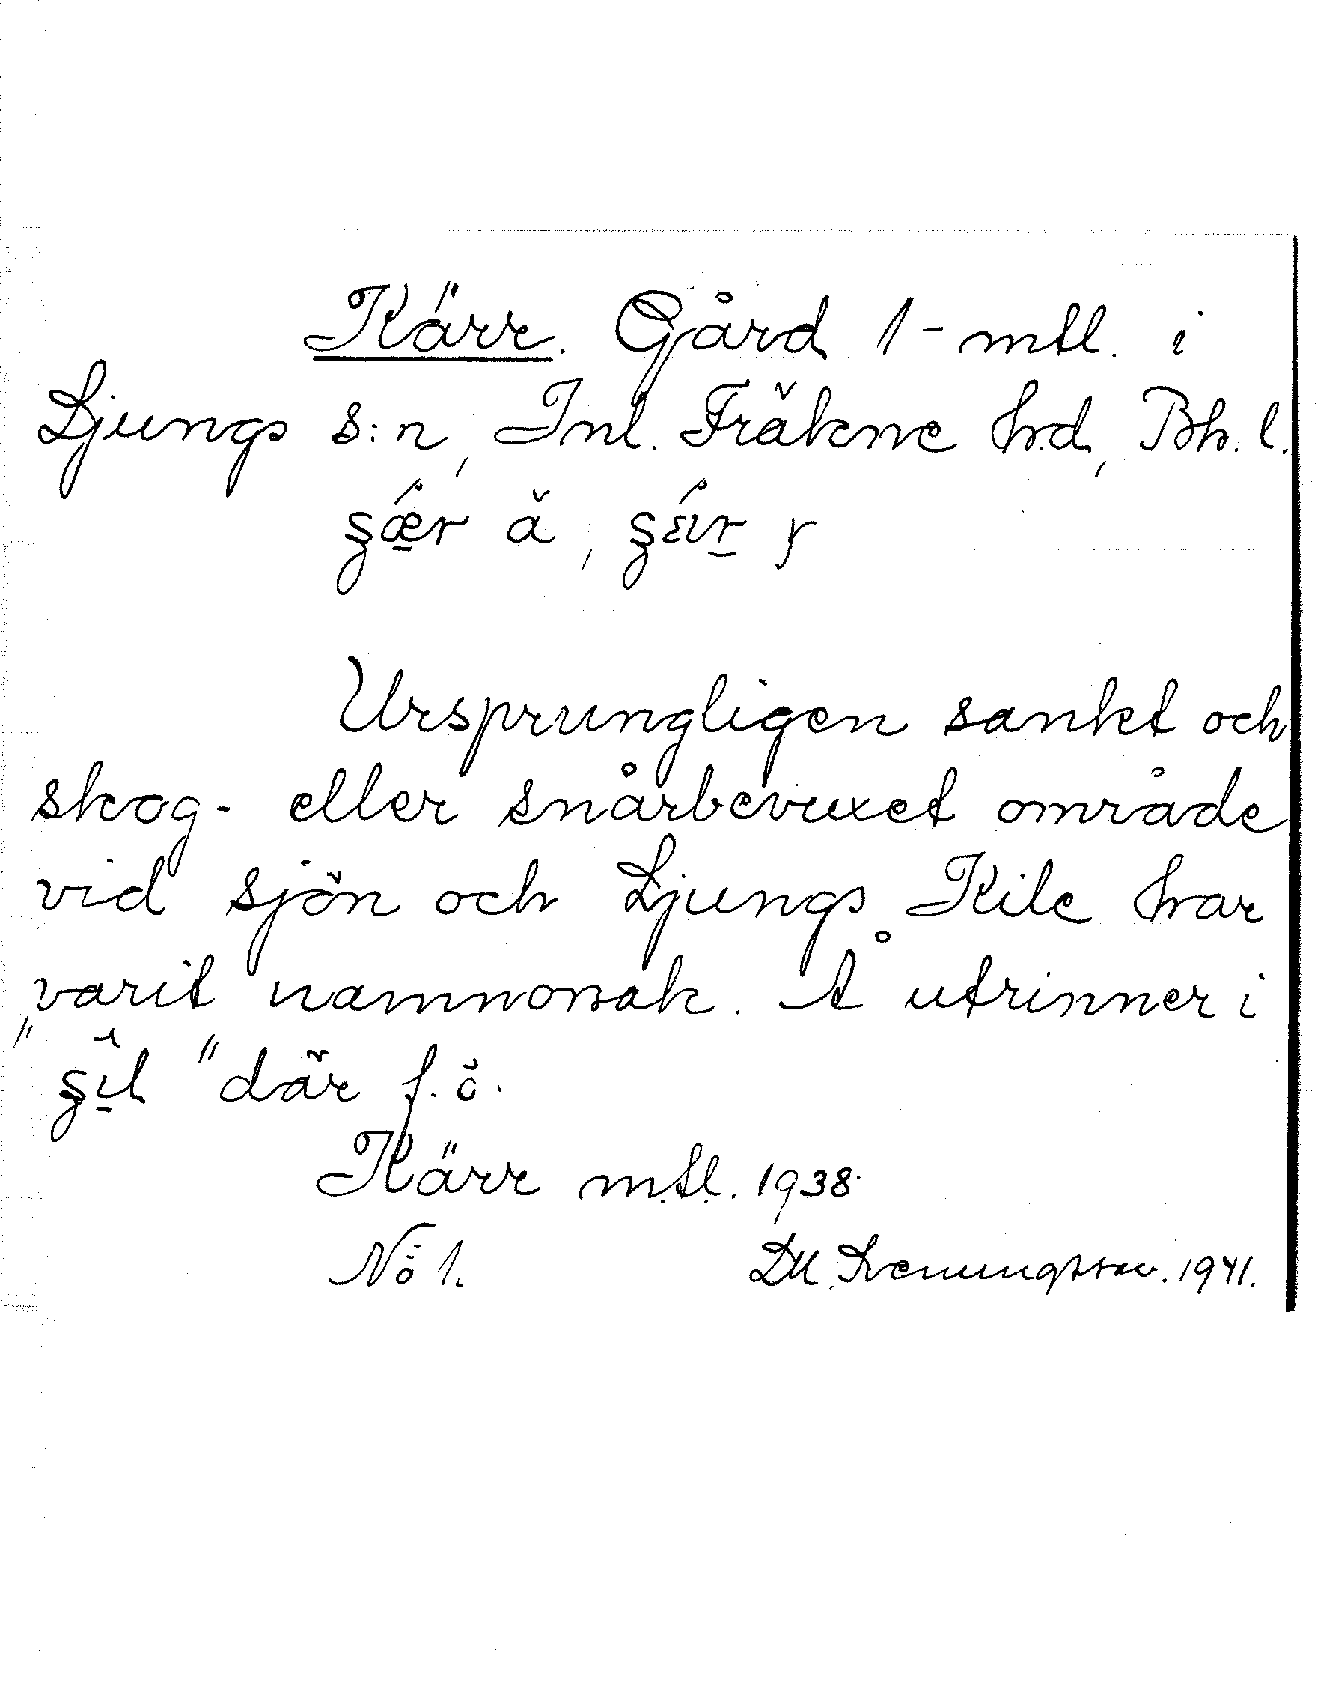 Kärr. Gård 1 - mtl. i
Ljungs s:n, Inl. Fräkne hrd, Bh. l.
Ursprungligen sankt och
skog- eller snårbevuxet område
vid sjön och Ljungs Kile har
varit namnorsak. Å utrinner i
där f. ö.
Kärr mtl. 1938
No 1. 1941.